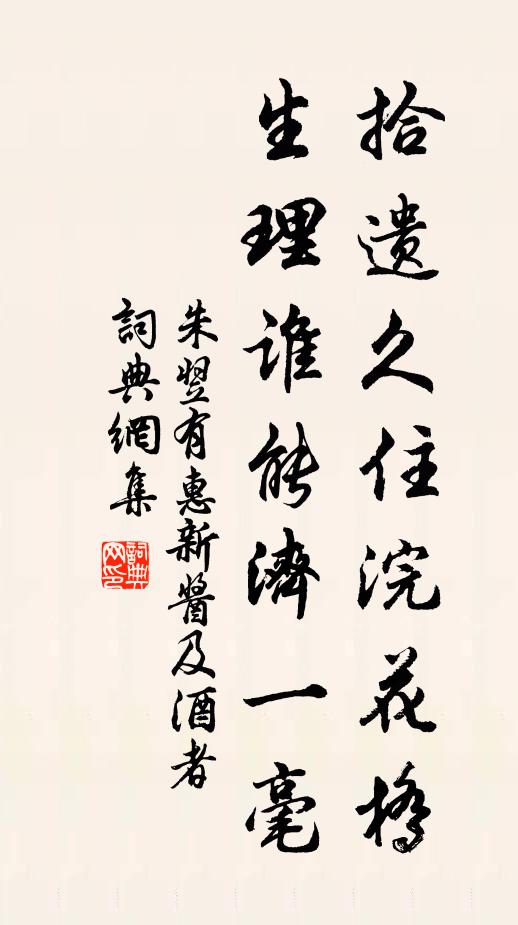 拾遺久住浣花橋
生理誰能濟一毫
朱翌有惠新醬及酒者
詞典網集
詞典网印